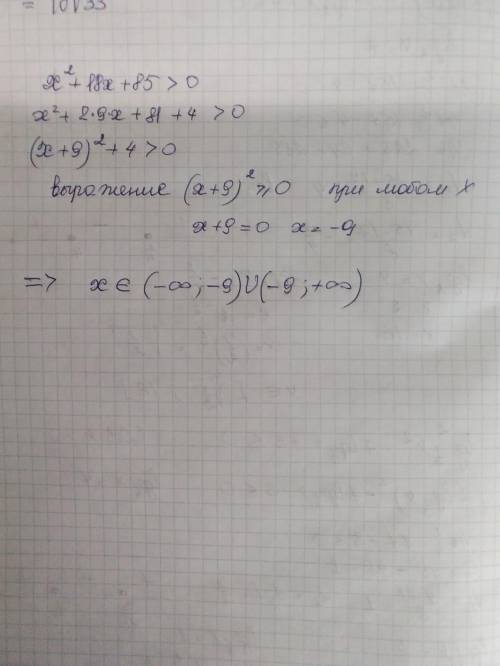 = 10√33
x² + 18x + 85 > 0
x² + 2·9·x + 81 + 4 > 0
(x+9)² + 4 > 0
выражение (x+9)² ≥ 0 при любом x
x+9=0 x=-9
=> x ∈ (-∞;-9)U(-9;+∞)